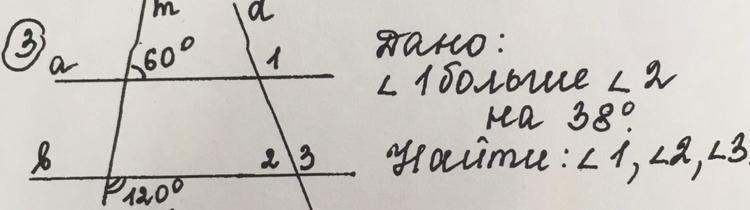 3
m
d
a
60°
1
Дано:
∠1 больше ∠2
на 38°.
Найти: ∠1, ∠2, ∠3.
b
2 3
120°